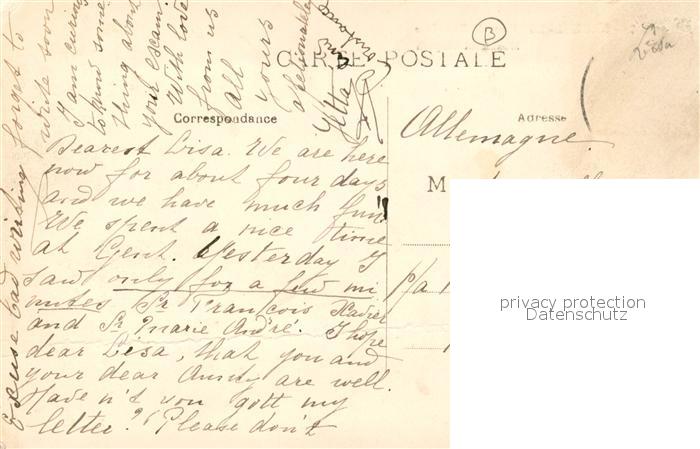 CARTE POSTALE
Correspondance
Adresse
B
Lisa
Allemagne.
M
p/a
Dearest Lisa. We are here
now for about four days
and we have much fun!!
We spent a nice time
at Gent. Yesterday I
saw only for a few mi
nutes Sr. François Xavier
and Sr. Marie André. I hope
dear Lisa, that you and
your dear Anny are well.
Have n't you gott my
letter? Please don't
forget to
write soon
I am curious
to know some
thing about
your exami
With love
from us
all
yours
affectionately
Etta
excuse bad writing
privacy protection
Datenschutz